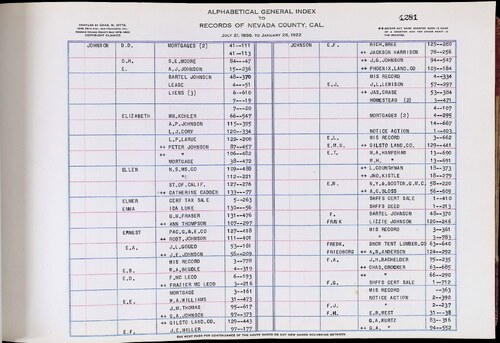 ALPHABETICAL GENERAL INDEX
TO
RECORDS OF NEVADA COUNTY, CAL.
JULY 21, 1856, TO JANUARY 26, 1922
4281
JOHNSON D.D. MORTGAGES (2) 41—111
41—113
D.H. S.E.MOORE 84—47
E. A.J.JOHNSON 15—236
BARTEL JOHNSON 48—370
LEASE 4—51
LIENS (3) 6—610
7—19
7—20
ELIZABETH WM.KOHLER 66—547
A.P.JOHNSON 115—395
L.J.CORY 120—334
L.P.LARUE 120—208
++ PETER JOHNSON 87—457
++ " 106—482
MORTGAGE 38—472
ELLEN N.S.MG.CO 109—488
" 112—221
ST.OF.CALIF. 127—276
++ CATHERINE CADDER 133—77
ELMER CERT TAX SALE 5—263
EMMA IDA LUKE 132—56
G.W.FRASER 131—476
++ ANN THOMPSON 107—297
ERNEST PAC.G.&E.CO 127—418
++ ROBT.JOHNSON 111—401
E.A. J.L.GOULD 53—101
++ J.E.JOHNSON 56—209
MIS RECORD 3—778
E.B. W.A.BEGOLE 4—310
E.D. F.MC LEOD 6—193
++ FRAZIER MC LEOD 3—216
MORTGAGE 3—161
E.E. W.A.WILLIAMS 31—473
J.M.THOMAS 95—617
++ G.A.JOHNSON 97—373
++ GILSTO LAND.CO. 129—443
E.F. J.E.HILLER 97—177
JOHNSON E.F. RICH,BREE 125—280
++ JACKSON HARRISON 78—256
++ J.G.JOHNSON 94—547
++ PHOENIX,LAND.CO 125—184
MIS RECORD 4—334
E.J. J.L.LENISON 57—297
++ JAS.CRASE 53—384
HOMESTEAD (2) 3—471
4—107
MORTGAGES (2) 4—295
14—607
NOTICE ACTION 1—403
E.L. MIS RECORD 3—662
E.M.S. ++ GILSTO LAND.CO. 129—441
E.T. W.A.HAMPSHAW 13—690
W.H. " 13—691
++ L.COUNSMAN 18—373
++ JNO.KISTLE 18—279
E.W. N.Y.&BOSTON.G.M.C. 58—220
++ A.C.BLOSS 56—509
SHFFS CERT SALE 1—410
SHFFS DEED 1—213
F. BARTEL JOHNSON 48—370
FRANK LIZZIE JOHNSON 120—246
MIS RECORD 3—361
" 3—783
FREDK. SHOR TENT LUMBER.CO 63—640
FRIEDBORG ++ A.R.ANDERSON 124—292
F.A. J.H.BACHELDER 75—235
++ CHAS.CROCKER 63—685
++ " 66—290
F.G. SHFFS CERT SALE 1—712
MIS RECORD
NOTICE ACTION 2—390
F.J. " 2—237
F.H. E.B.WEST 31—38
G.A.KURTZ 83—316
++ G.A. " 94—552